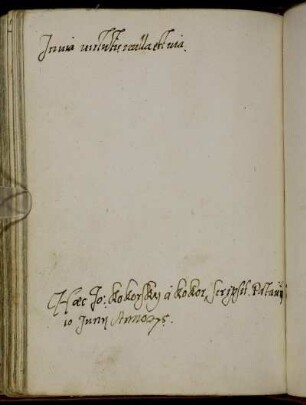 Inuia uirtuti nulla est uia.
Haec Jo: Kokorsky à Kokor, scripsit Patauij
10 Junij Anno 75.